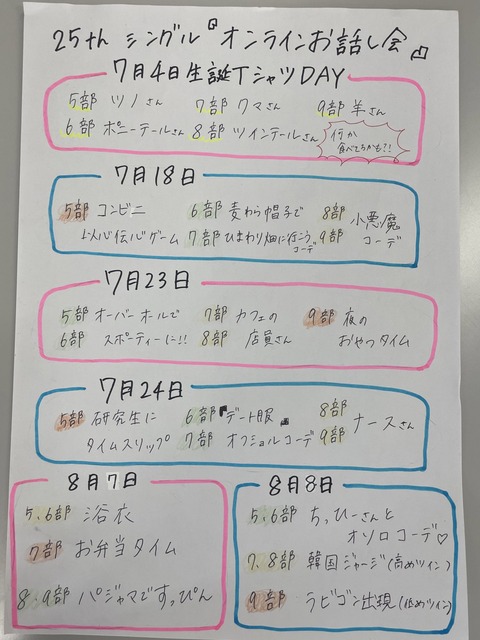 25th シングル『オンラインお話し会』
7月4日生誕TシャツDAY
5部 ツノさん 7部 クマさん 9部 羊さん
6部 ポニーテールさん 8部 ツインテールさん 何か
食べてるかも?!
7月18日
5部 コンビニ 6部 麦わら帽子で 8部 小悪魔
以心伝心ゲーム 7部 ひまわり畑に行こうコーデ 9部 コーデ
7月23日
5部 オーバーオールで 7部 カフェの 9部 夜の
6部 スポーティーに!! 8部 店員さん おやつタイム
7月24日
5部 研究生に 6部『デート服』 8部 ナースさん
タイムスリップ 7部 オフショルコーデ 9部
8月7日
5.6部 浴衣
7部 お弁当タイム
8.9部 パジャマですっぴん
8月8日
5.6部 ちっひーさんと
オソロコーデ♡
7.8部 韓国ジャージ(高めツイン)
9部 ラビゴン出現(低めツイン)